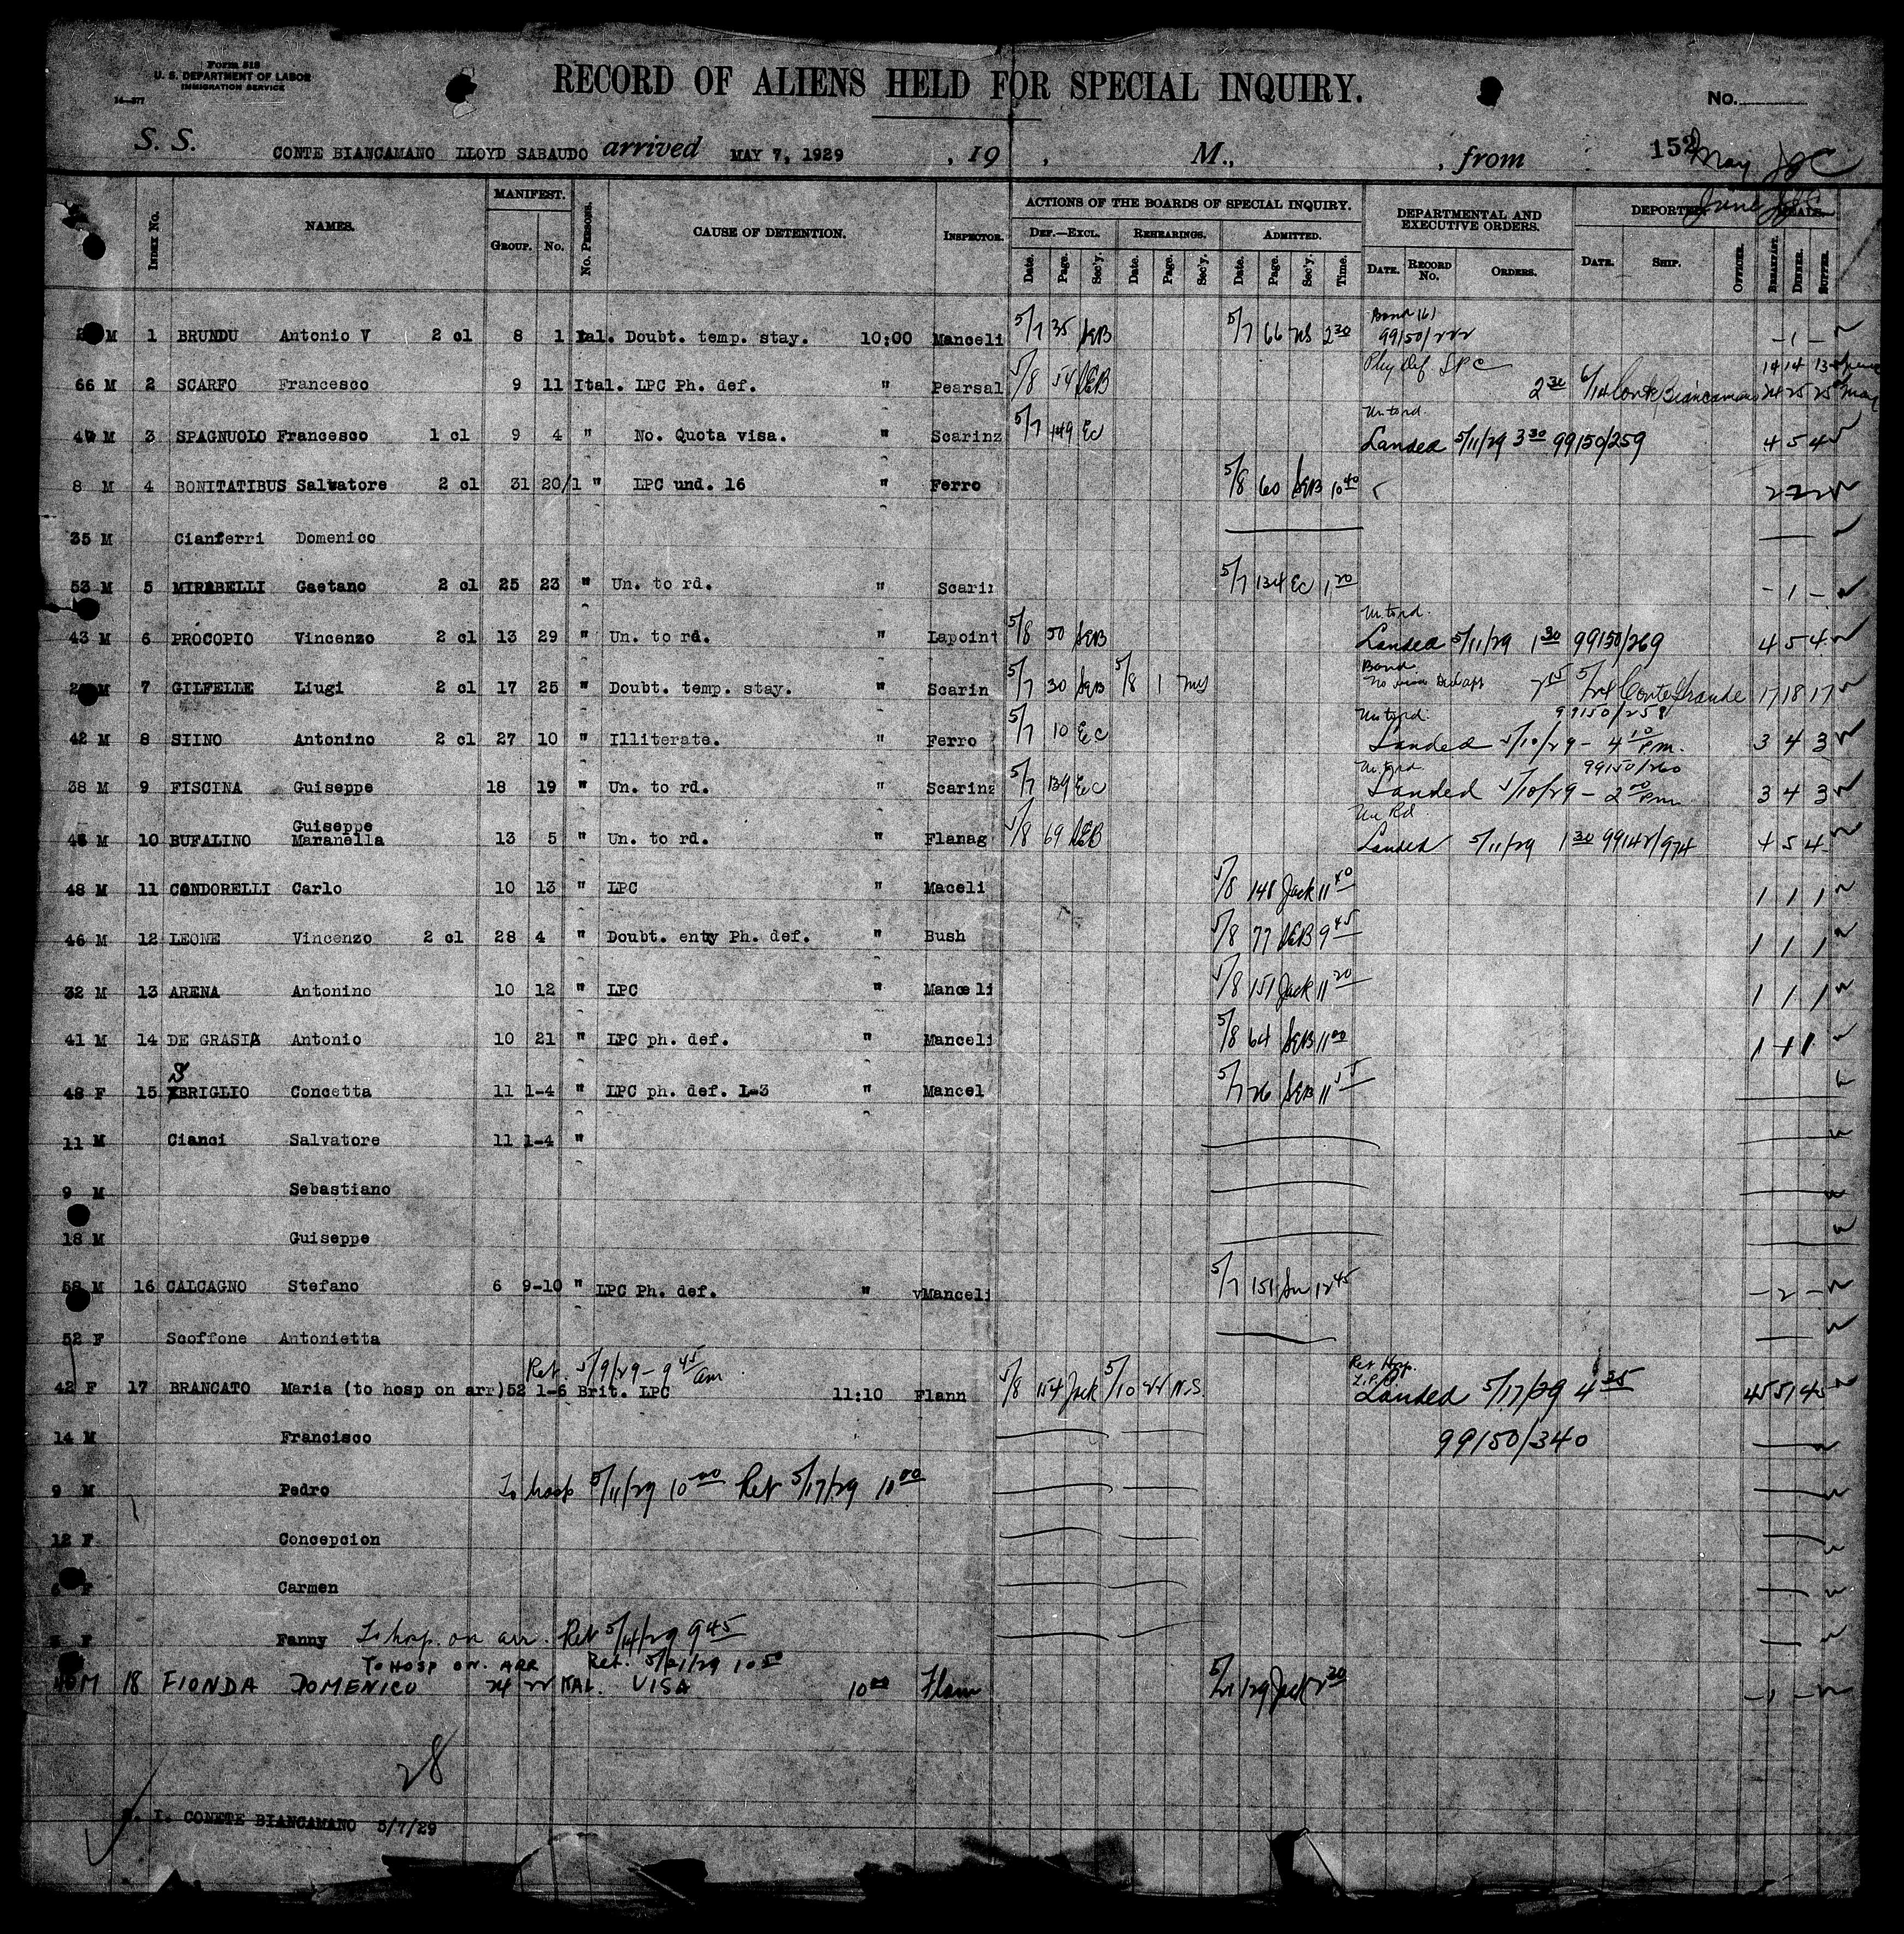 Form 518
U. S. DEPARTMENT OF LABOR
IMMIGRATION SERVICE
14—577
RECORD OF ALIENS HELD FOR SPECIAL INQUIRY.
No.
S. S. CONTE BIANCAMANO LLOYD SABAUDO arrived MAY 7, 1929 , 19 , M., , from 152 May
June
Index No. NAMES. MANIFEST. GROUP. NO. No. Persons. CAUSE OF DETENTION. INSPECTOR. ACTIONS OF THE BOARDS OF SPECIAL INQUIRY. DEF.—EXCL. REHEARINGS. ADMITTED. DEPARTMENTAL AND EXECUTIVE ORDERS. DEPORTED.
Date. Page. Sec'y. Date. Page. Sec'y. Date. Page. Sec'y. Time. DATE. RECORD NO. ORDERS. DATE. SHIP. OFFICER. BREAKFAST. DINNER. SUPPER.
M 1 BRUNDU Antonio V 2 cl 8 1 Ital. Doubt. temp. stay. 10:00 Manceli 5/7 35 SEB 5/7 66 NS 2 30 Bond 99150/222 - 1 -
66 M 2 SCARFO Francesco 9 11 Ital. LPC Ph. def. " Pearsal 5/8 54 SEB Phy Def LPC 2 30 6/14 Conte Biancamano 14 14 13 June 24 25 25 May
M 3 SPAGNUOLO Francesco 1 cl 9 4 " No. Quota visa. " Scarinz 5/7 149 EC Landed 5/11/29 3 30 99150/259 4 5 4
8 M 4 BONITATIBUS Salvatore 2 cl 31 20/1 " LPC und. 16 " Ferro 5/8 60 SEB 10 40 2 2 2
35 M Cianferri Domenico
53 M 5 MIRABELLI Gaetano 2 cl 25 23 " Un. to rd. " Scarin 5/7 134 EC 1 20 - 1 -
43 M 6 PROCOPIO Vincenzo 2 cl 13 29 " Un. to rd. " Lapoint 5/8 50 SEB Un to rd. Landed 5/11/29 1 30 99150/269 4 5 4
M 7 GILFELLE Liugi 2 cl 17 25 " Doubt. temp. stay. " Scarin 5/7 30 SEB 5/8 1 Bond 5/24 Conte Grande 17 18 17
42 M 8 SIINO Antonino 2 cl 27 10 " Illiterate. " Ferro 5/7 10 EC Un to rd. Landed 5/10/29 - 4 10 P.m. 3 4 3
38 M 9 FISCINA Guiseppe 18 19 " Un. to rd. " Scarinz 5/7 139 EC Un to rd. 99150/260 Landed 5/10/29 - 2 00 Pm 3 4 3
M 10 BUFALINO Guiseppe Maranella 13 5 " Un. to rd. " Flanag 5/8 69 SEB Un Rd Landed 5/11/29 1 30 99142/974 4 5 4
48 M 11 CONDORELLI Carlo 10 13 " LPC " Maceli 5/8 148 Jack 11 40 1 1 1
46 M 12 LEONE Vincenzo 2 cl 28 4 " Doubt. enty Ph. def. " Bush 5/8 77 SEB 9 45 1 1 1
32 M 13 ARENA Antonino 10 12 " LPC " Manceli 5/8 151 Jack 11 20 1 1 1
41 M 14 DE GRASIA Antonio 10 21 " LPC ph. def. " Manceli 5/8 64 SEB 11 00 1 1 1
48 F 15 SBRIGLIO Concetta 11 1-4 " LPC ph. def. L-3 " Mancel 5/7 26 SEB 11 55
11 M Cianci Salvatore 11 1-4 "
9 M Sebastiano
18 M Guiseppe
58 M 16 CALCAGNO Stefano 6 9-10 " LPC Ph. def. " vManceli 5/7 151 12 45 - 2 -
52 F Scoffone Antonietta
Ret. 5/9/29 - 9 45 am
42 F 17 BRANCATO Maria (to hosp on arr) 52 1-6 Brit. LPC 11:10 Flann 5/8 154 Jack 5/10 N.S. Ret Hosp. L.P.C. Landed 5/17/29 4 35
14 M Francisco 99150/340
9 M Pedro To hosp 5/11/29 10 00 Ret 5/17/29 10 00
12 F Concepcion
F Carmen
F Fanny To hosp. on arr. Ret 5/14/29 9 45
TO HOSP ON. ARR Ret. 5/21/29 10 50
M 18 FIONDA DOMENICO 24 22 ITAL. VISA 10 00 Flann 5/21 129 Jack 2 30 - 1 -
28
S. I. CONETE BIANCAMANO 5/7/29